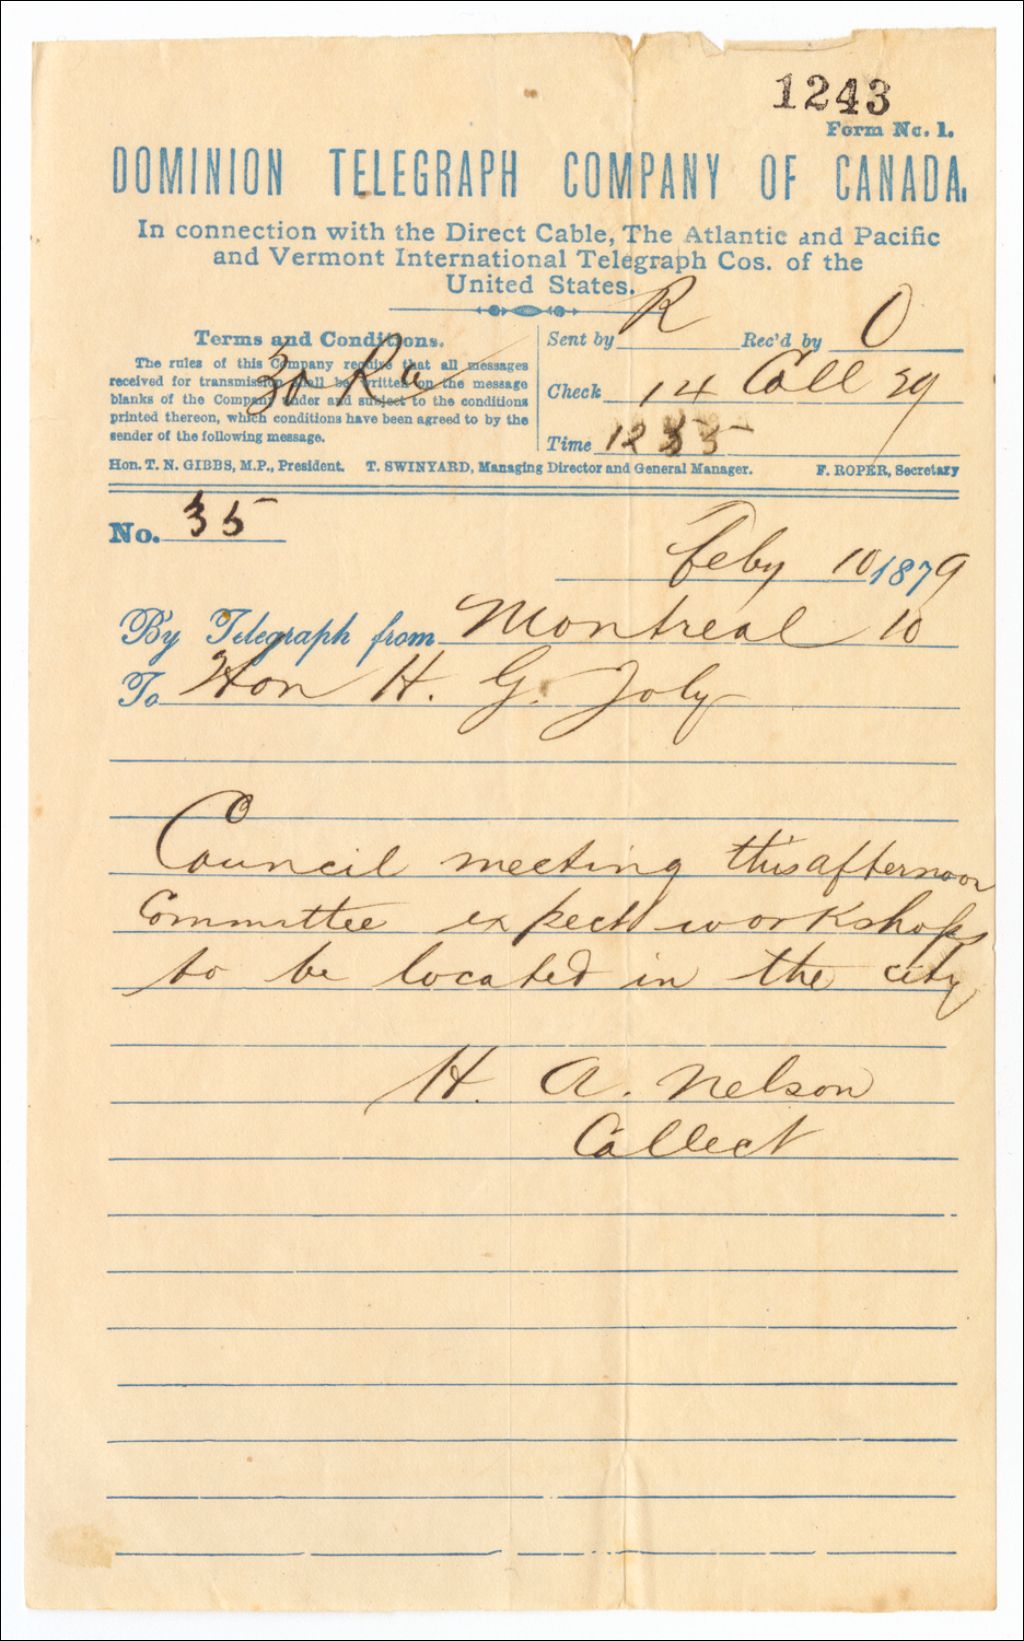 1243
Form No. 1.
DOMINION TELEGRAPH COMPANY OF CANADA.
In connection with the Direct Cable, The Atlantic and Pacific
and Vermont International Telegraph Cos. of the
United States.
Terms and Conditions.
The rules of this Company require that all messages
received for transmission shall be written on the message
blanks of the Company under and subject to the conditions
printed thereon, which conditions have been agreed to by the
sender of the following message.
30
Sent by R Rec'd by O
Check 14 Coll 29
Time 1235
Hon. T. N. GIBBS, M.P., President. T. SWINYARD, Managing Director and General Manager. F. ROPER, Secretary
No. 35
Feby 10 1879
By Telegraph from Montreal 10
To Hon H. G. Joly
Council meeting this afternoon
Committee expect workshops
to be located in the city
H. A. Nelson
Collect